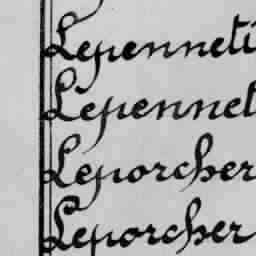 Lepenneti
Lepennet
Leporcher
Leporcher